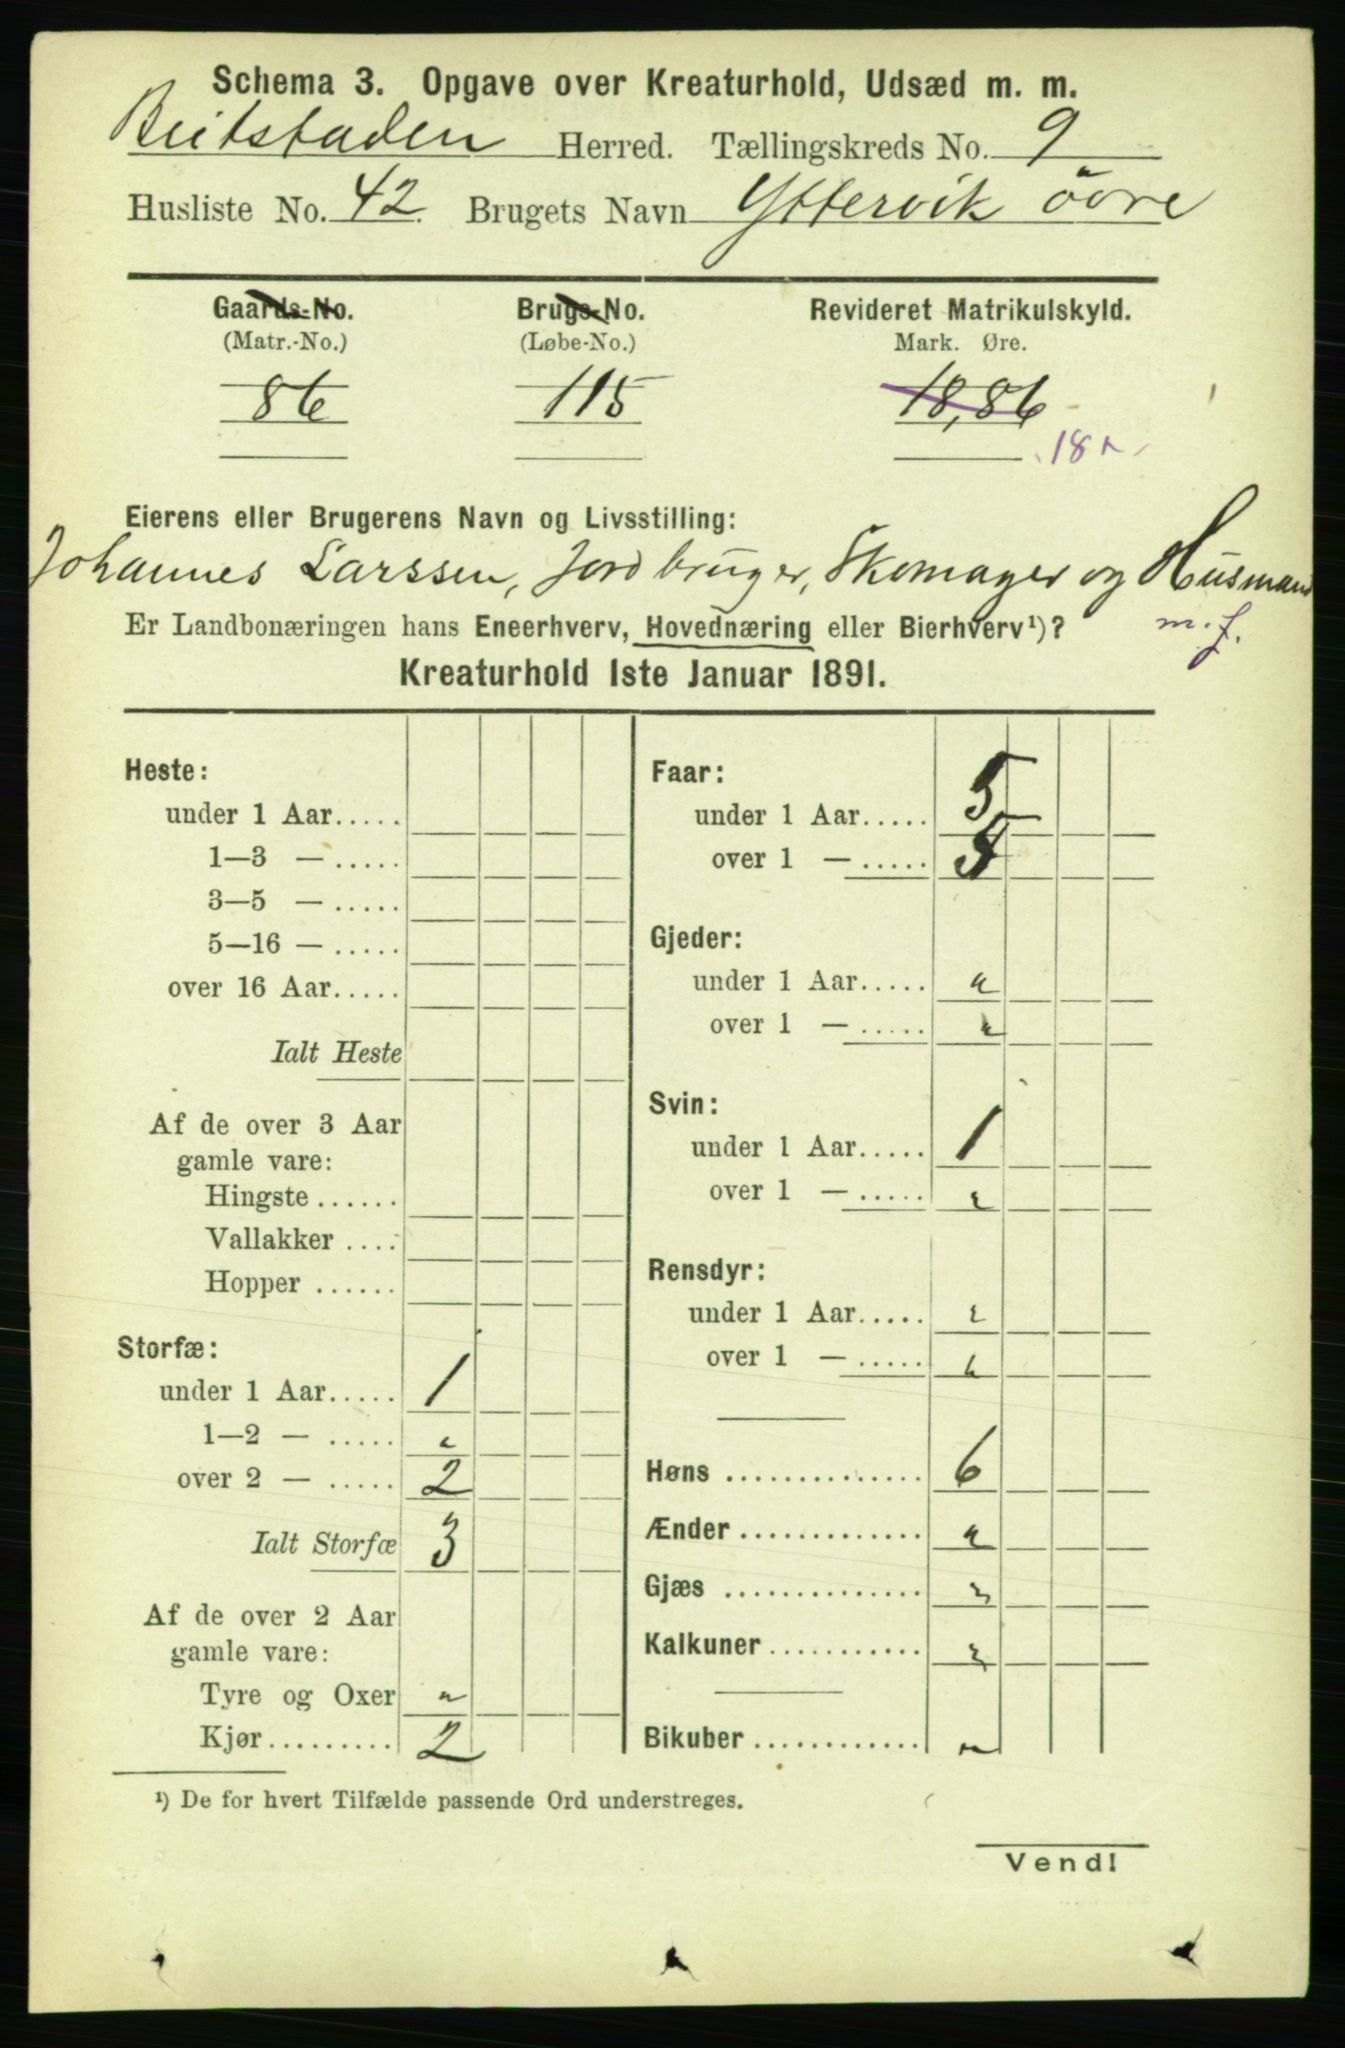 Schema 3. Opgave over Kreaturhold, Udsæd m. m.
Beitstaden Herred. Tællingskreds No. 9
Husliste No. 42. Brugets Navn Yttervik övre
Gaards-No. Brugs-No. Revideret Matrikulskyld.
(Matr.-No.) (Løbe-No.) Mark. Øre.
86 115 18,86
Eierens eller Brugerens Navn og Livsstilling:
Johannes Larssen, Jordbruger, Skomager og Husmand
m. f.
Er Landbonæringen hans Eneerhverv, Hovednæring eller Bierhverv¹)?
Kreaturhold 1ste Januar 1891.
Heste:
under 1 Aar.....
1—3 — .....
3—5 — .....
5—16 — .....
over 16 Aar.....
Ialt Heste
Af de over 3 Aar
gamle vare:
Hingste ......
Vallakker ....
Hopper ......
Storfæ:
under 1 Aar..... 1
1—2 — ..... "
over 2 — ..... 2
Ialt Storfæ 3
Af de over 2 Aar
gamle vare:
Tyre og Oxer "
Kjør......... 2
Faar:
under 1 Aar..... 5
over 1 — ..... 5
Gjeder:
under 1 Aar..... "
over 1 — ..... "
Svin:
under 1 Aar..... 1
over 1 — ..... "
Rensdyr:
under 1 Aar..... "
over 1 — ..... "
Høns .............. 6
Ænder ............. "
Gjæs .............. "
Kalkuner ........... "
Bikuber ............ "
¹) De for hvert Tilfælde passende Ord understreges.
Vend!